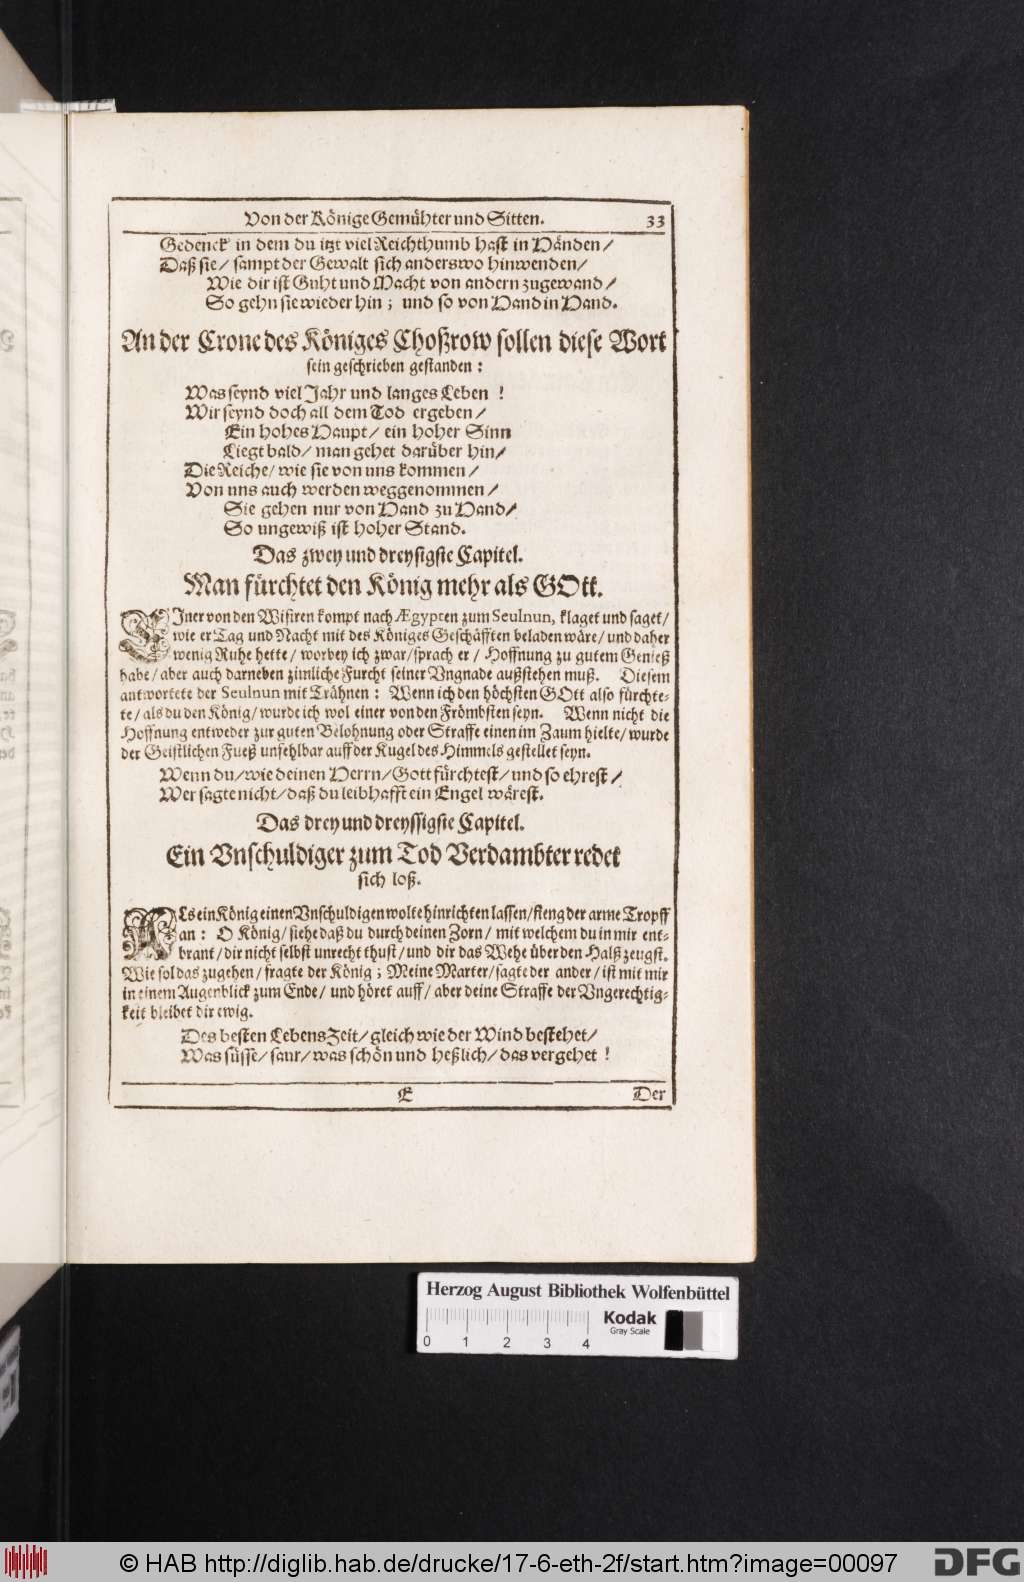 Von der Könige Gemühter und Sitten. 33
Gedenck in dem du itzt viel Reichthumb hast in Händen/
Daß sie/ sampt der Gewalt sich anderswo hinwenden/
Wie dir ist Guht und Macht von andern zugewand/
So gehn sie wieder hin; und so von Hand in Hand.
An der Crone des Königes Choßrow sollen diese Wort
sein geschrieben gestanden:
Was seynd viel Jahr und langes Leben!
Wir seynd doch all dem Tod ergeben/
Ein hohes Haupt/ ein hoher Sinn
Liegt bald/ man gehet darüber hin/
Die Reiche/ wie sie von uns kommen/
Von uns auch werden weggenommen/
Sie gehen nur von Hand zu Hand/
So ungewiß ist hoher Stand.
Das zwey und dreysigste Capitel.
Man fürchtet den König mehr als GOtt.
EJner von den Wisiren kompt nach Ægypten zum Seulnun, klaget und saget/
wie er Tag und Nacht mit des Königes Geschäfften beladen wäre/ und daher
wenig Ruhe hette/ worbey ich zwar/ sprach er/ Hoffnung zu gutem Genieß
habe/ aber auch darneben zimliche Furcht seiner Vngnade außstehen muß. Diesem
antwortete der Seulnun mit Trähnen: Wenn ich den höchsten GOtt also fürchte-
te/ als du den König/ wurde ich wol einer von den Frömbsten seyn. Wenn nicht die
Hoffnung entweder zur guten Belohnung oder Straffe einen im Zaum hielte/ wurde
der Geistlichen Fueß unfehlbar auff der Kugel des Himmels gestellet seyn.
Wenn du/ wie deinen Herrn/ Gott fürchtest/ und so ehrest/
Wer sagte nicht/ daß du leibhafft ein Engel wärest.
Das drey und dreyssigste Capitel.
Ein Vnschuldiger zum Tod Verdambter redet
sich loß.
ALs ein König einen Vnschuldigen wolte hinrichten lassen/ fieng der arme Tropff
an: O König/ siehe daß du durch deinen Zorn/ mit welchem du in mir ent-
brant/ dir nicht selbst unrecht thust/ und dir das Wehe über den Halß zeugst.
Wie sol das zugehen/ fragte der König; Meine Marter/ sagte der ander/ ist mit mir
in einem Augenblick zum Ende/ und höret auff/ aber deine Straffe der Vngerechtig-
keit bleibet dir ewig.
Des besten Lebens Zeit/ gleich wie der Wind bestehet/
Was süsse/ saur/ was schön und heßlich/ das vergehet!
E Der
Herzog August Bibliothek Wolfenbüttel
Kodak
Gray Scale
0 1 2 3 4
© HAB http://diglib.hab.de/drucke/17-6-eth-2f/start.htm?image=00097
DFG